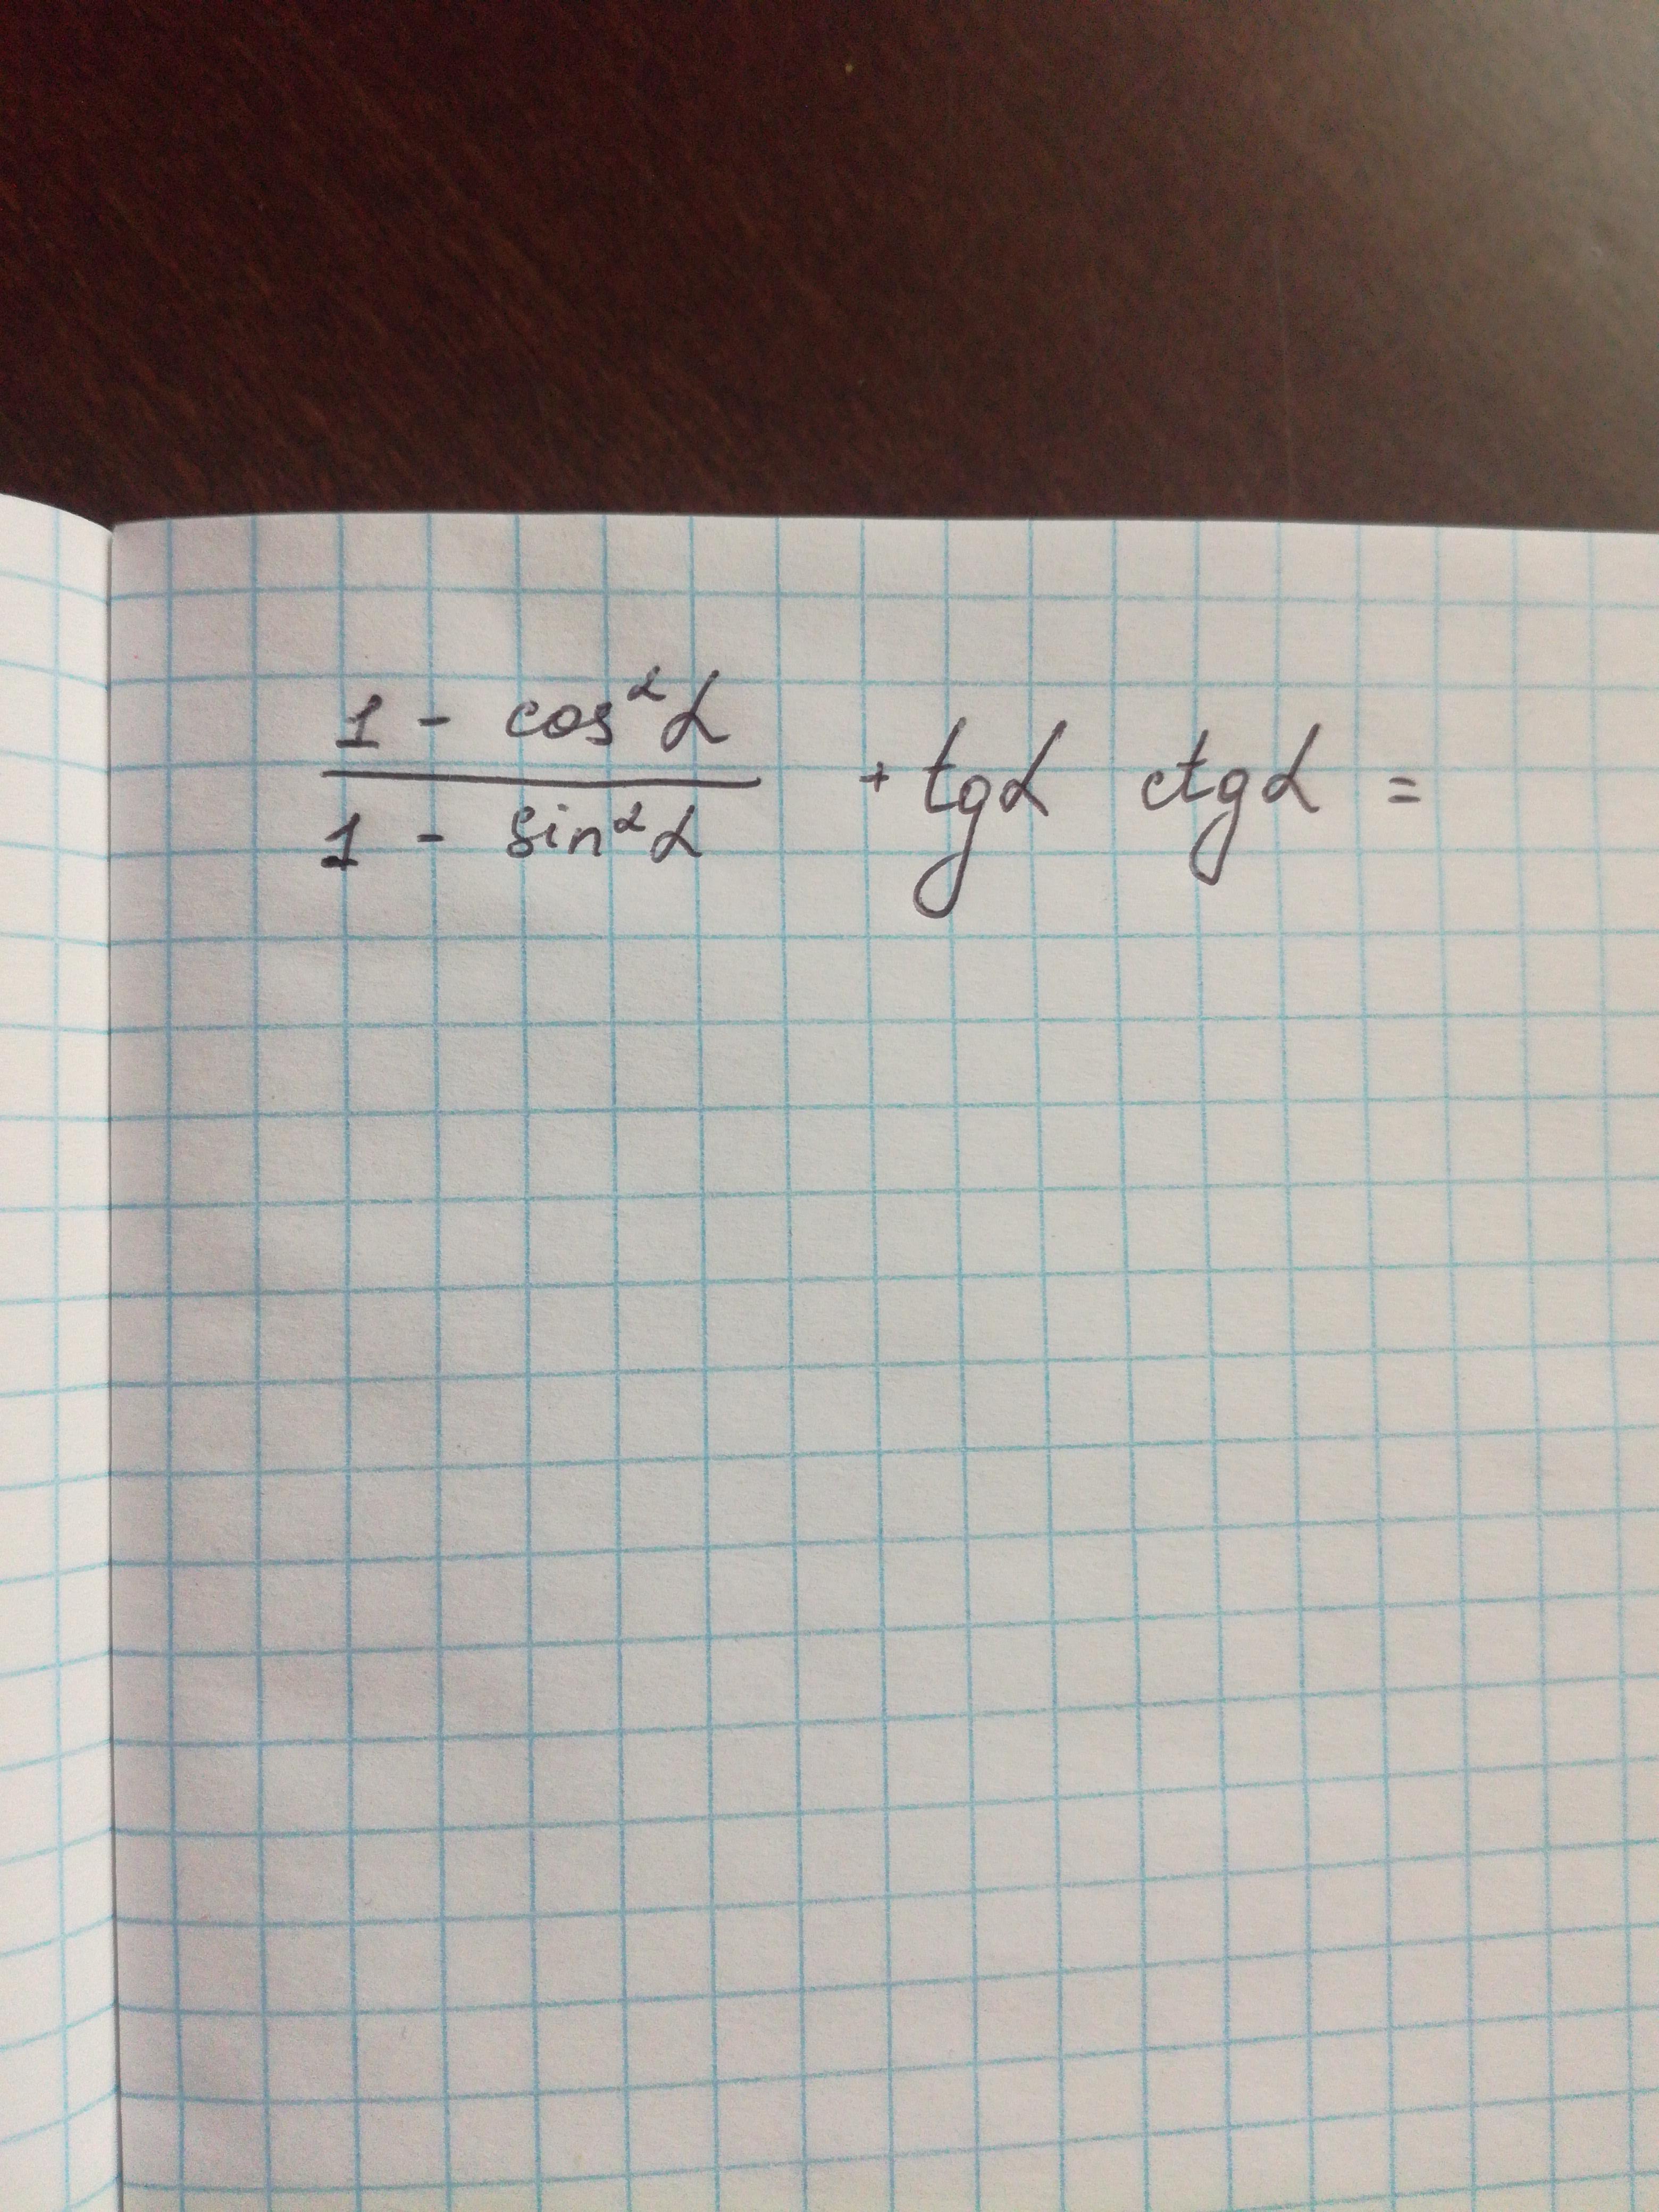 1 - cos²α
1 - sin²α
+ tgα ctgα =